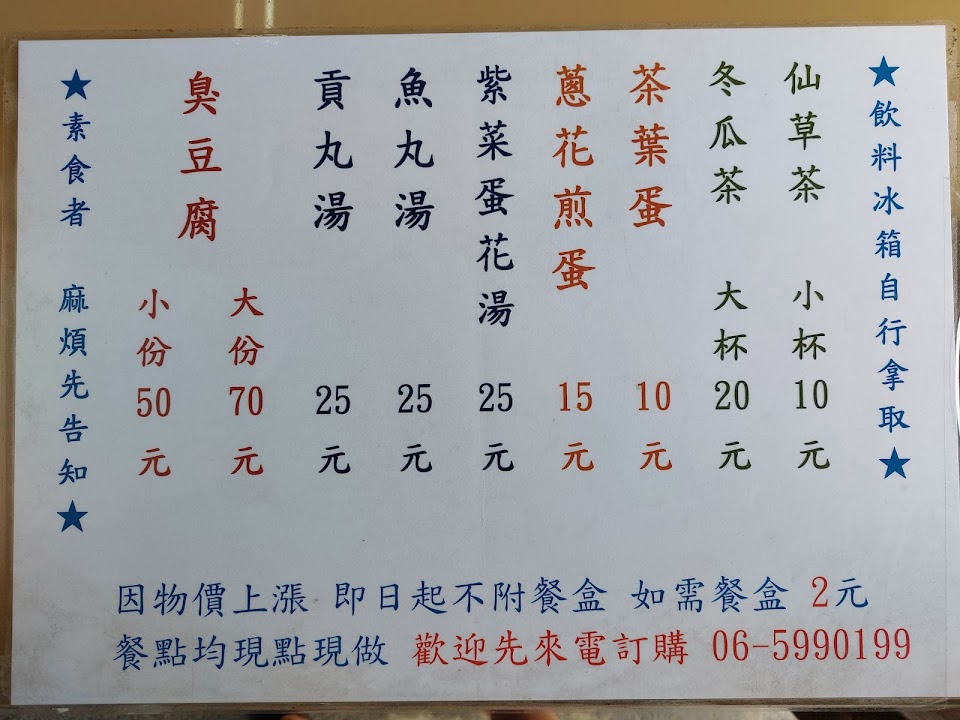 ★飲料冰箱自行拿取★
仙草茶
冬瓜茶
小杯10元
大杯20元
茶葉蛋 10元
蔥花煎蛋 15元
紫菜蛋花湯 25元
魚丸湯 25元
貢丸湯 25元
臭豆腐
大份70元
小份50元
★素食者 麻煩先告知★
因物價上漲 即日起不附餐盒 如需餐盒 2元
餐點均現點現做 歡迎先來電訂購 06-5990199